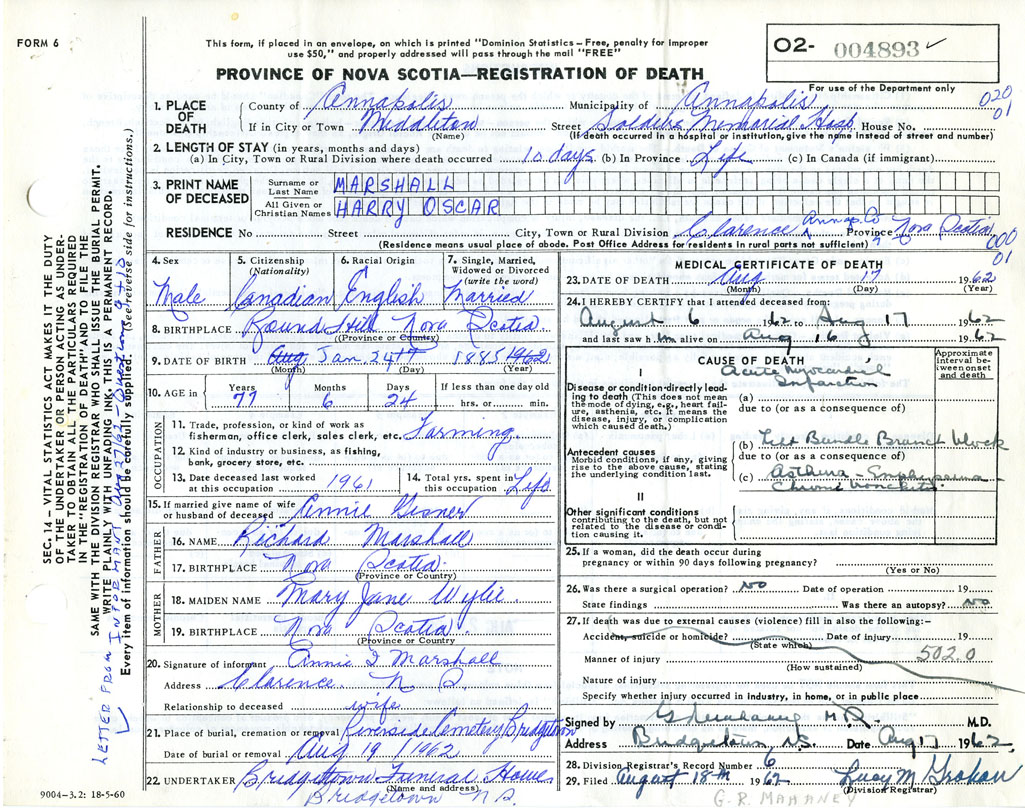 FORM 6
This form, if placed in an envelope, on which is printed "Dominion Statistics—Free, penalty for improper
use $50," and properly addressed will pass through the mail "FREE"
O2- 004893 ✓
For use of the Department only
PROVINCE OF NOVA SCOTIA—REGISTRATION OF DEATH
020
01
1. PLACE OF DEATH
County of Annapolis Municipality of Annapolis
If in City or Town Middleton Street Soldiers Memorial Hosp. House No.
(Name) (If death occurred in a hospital or institution, give the name instead of street and number)
2. LENGTH OF STAY (in years, months and days)
(a) In City, Town or Rural Division where death occurred 10 days. (b) In Province Life (c) In Canada (if immigrant)
3. PRINT NAME OF DECEASED
Surname or Last Name MARSHALL
All Given or Christian Names HARRY OSCAR
RESIDENCE No. Street City, Town or Rural Division Clarence Annap. Co Province Nova Scotia
(Residence means usual place of abode. Post Office Address for residents in rural parts not sufficient)
000
01
4. Sex Male
5. Citizenship (Nationality) Canadian
6. Racial Origin English
7. Single, Married, Widowed or Divorced (write the word) Married
8. BIRTHPLACE Round Hill Nova Scotia
(Province or Country)
9. DATE OF BIRTH Aug Jan 24th 1885 1962
(Month) (Day) (Year)
10. AGE in Years 77 Months 6 Days 24 If less than one day old hrs. or min.
OCCUPATION
11. Trade, profession, or kind of work as fisherman, office clerk, sales clerk, etc. Farming.
12. Kind of industry or business, as fishing, bank, grocery store, etc.
13. Date deceased last worked at this occupation 1961
14. Total yrs. spent in this occupation Life
15. If married give name of wife or husband of deceased Annie Gesner
FATHER
16. NAME Richard Marshall
17. BIRTHPLACE Nova Scotia
(Province or Country)
MOTHER
18. MAIDEN NAME Mary Jane Wylie
19. BIRTHPLACE Nova Scotia
(Province or Country
20. Signature of informant Annie I Marshall
Address Clarence. N S.
Relationship to deceased wife
21. Place of burial, cremation or removal Riverside Cemetery Bridgetown
Date of burial or removal Aug 19 / 1962
22. UNDERTAKER Bridgetown Funeral Home
(Name and address)
Bridgetown N S.
MEDICAL CERTIFICATE OF DEATH
23. DATE OF DEATH Aug 17 1962
(Month) (Day) (Year)
24. I HEREBY CERTIFY that I attended deceased from:
August 6 1962 to Aug 17 1962
and last saw him alive on Aug 16 1962
CAUSE OF DEATH
Approximate interval between onset and death
I
Acute Myocardial Infarction
Disease or condition directly leading to death (This does not mean the mode of dying, e.g., heart failure, asthenia, etc. It means the disease, injury, or complication which caused death.)
(a)
due to (or as a consequence of)
Antecedent causes
Morbid conditions, if any, giving rise to the above cause, stating the underlying condition last.
(b) Left Bundle Branch Block
due to (or as a consequence of)
(c) Asthma - Emphysema - Chronic bronchitis.
II
Other significant conditions
contributing to the death, but not related to the disease or condition causing it.
25. If a woman, did the death occur during pregnancy or within 90 days following pregnancy?
(Yes or No)
26. Was there a surgical operation? NO Date of operation 19
State findings Was there an autopsy? NO
27. If death was due to external causes (violence) fill in also the following:—
Accident, suicide or homicide? Date of injury 19
(State which)
Manner of injury 502.0
(How sustained)
Nature of injury
Specify whether injury occurred in industry, in home, or in public place
Signed by M.D. M.D.
Address Bridgetown, N.S. Date Aug 17 1962.
28. Division Registrar's Record Number 6
29. Filed August 18th 1962 Lucy M Graham
(Division Registrar)
G. R. MAHANE
9004-3.2: 18-5-60
SEC. 14 - VITAL STATISTICS ACT MAKES IT THE DUTY
OF THE UNDERTAKER OR PERSON ACTING AS UNDERTAKER
TO OBTAIN ALL THE PARTICULARS REQUIRED
IN THE "REGISTRATION OF DEATH" AND FILE THE
SAME WITH THE DIVISION REGISTRAR WHO SHALL ISSUE THE BURIAL PERMIT.
WRITE PLAINLY WITH UNFADING INK. THIS IS A PERMANENT RECORD.
Every item of information should be carefully supplied. (See reverse side for instructions.)
✓ LETTER FROM INFORMANT Aug 27/62 - Questions 9 + 10